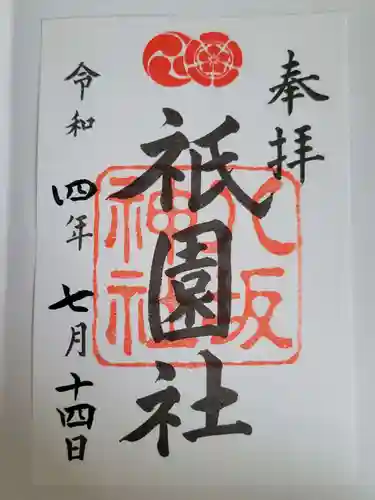 奉拝
八坂
神社
祇園社
令和四年七月十四日